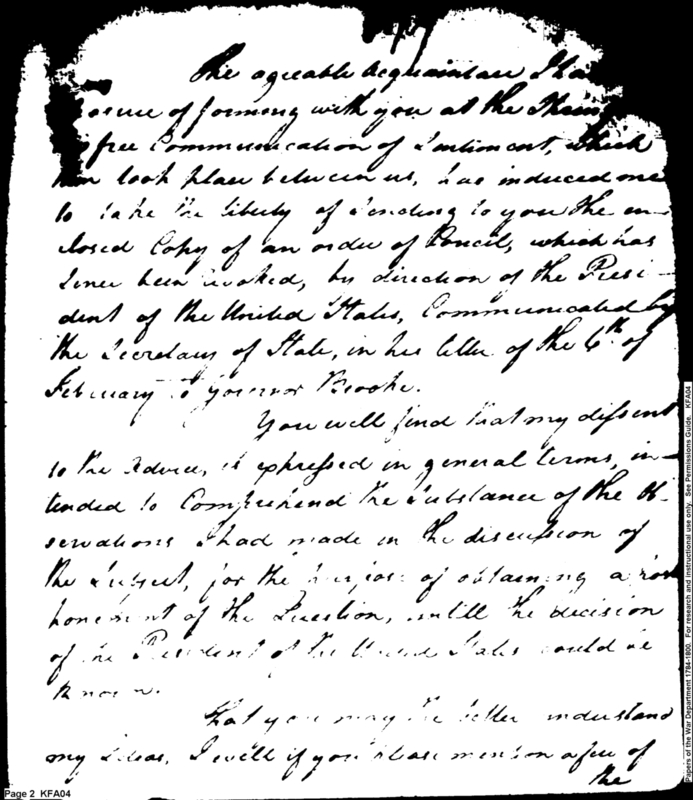 The agreable Acquaintance I ha
of forming with you at the
free Communication of Sentiment, which
took place between us, has induced me
to take the liberty of sending to you the en-
closed Copy of an order of Council, which has
since been revoked, by direction of the Presi-
dent of the United States, Communicated by
the Secretary of State, in his letter of the 6th of
February to Governor Brooke.
You will find that my dissent
to the Advice, is expressed in general terms, in-
tended to Comprehend the substance of the ob-
servations I had made in the discussion of
the subject, for the purpose of obtaining a post
ponement of the Question, untill the decision
of the President of the United States could be
known.
That you may the better understand
my Ideas, I will if you please mention a few of
the
Page 2 KFA04
Papers of the War Department 1784-1800. For research and instructional use only. See Permissions Guide. KFA04